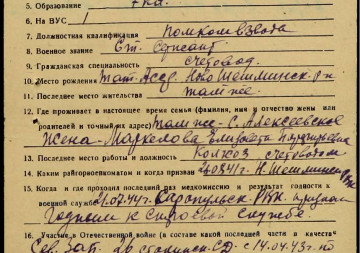 5. Образование 7 кл.
6. На ВУС 1
7. Должностная квалификация Помкомвзвода
8. Военное звание Ст. Сержант
9. Гражданская специальность счетовод
10. Место рождения Тат-Асср. Ново Шешминск. р-н
11. Последнее место жительства там же
12. Где проживает в настоящее время семья (фамилия, имя и отчество жены или
родителей и точный их адрес) там же - с. Алексеевское
Жена - Маркелова Елизавета
13. Последнее место работы и должность Колхоз счетоводом
14. Каким райгорвоенкоматом и когда призван Н. Шешминск
15. Когда и где проходил последний раз медкомиссию и результат годности к
военной службе 21.07.44г. РВК. признан
годным к строевой службе
16. Участие в Отечественной войне (в составе какой последней части и в качестве
Сев. Зап. СД - с 14.04.43г. по